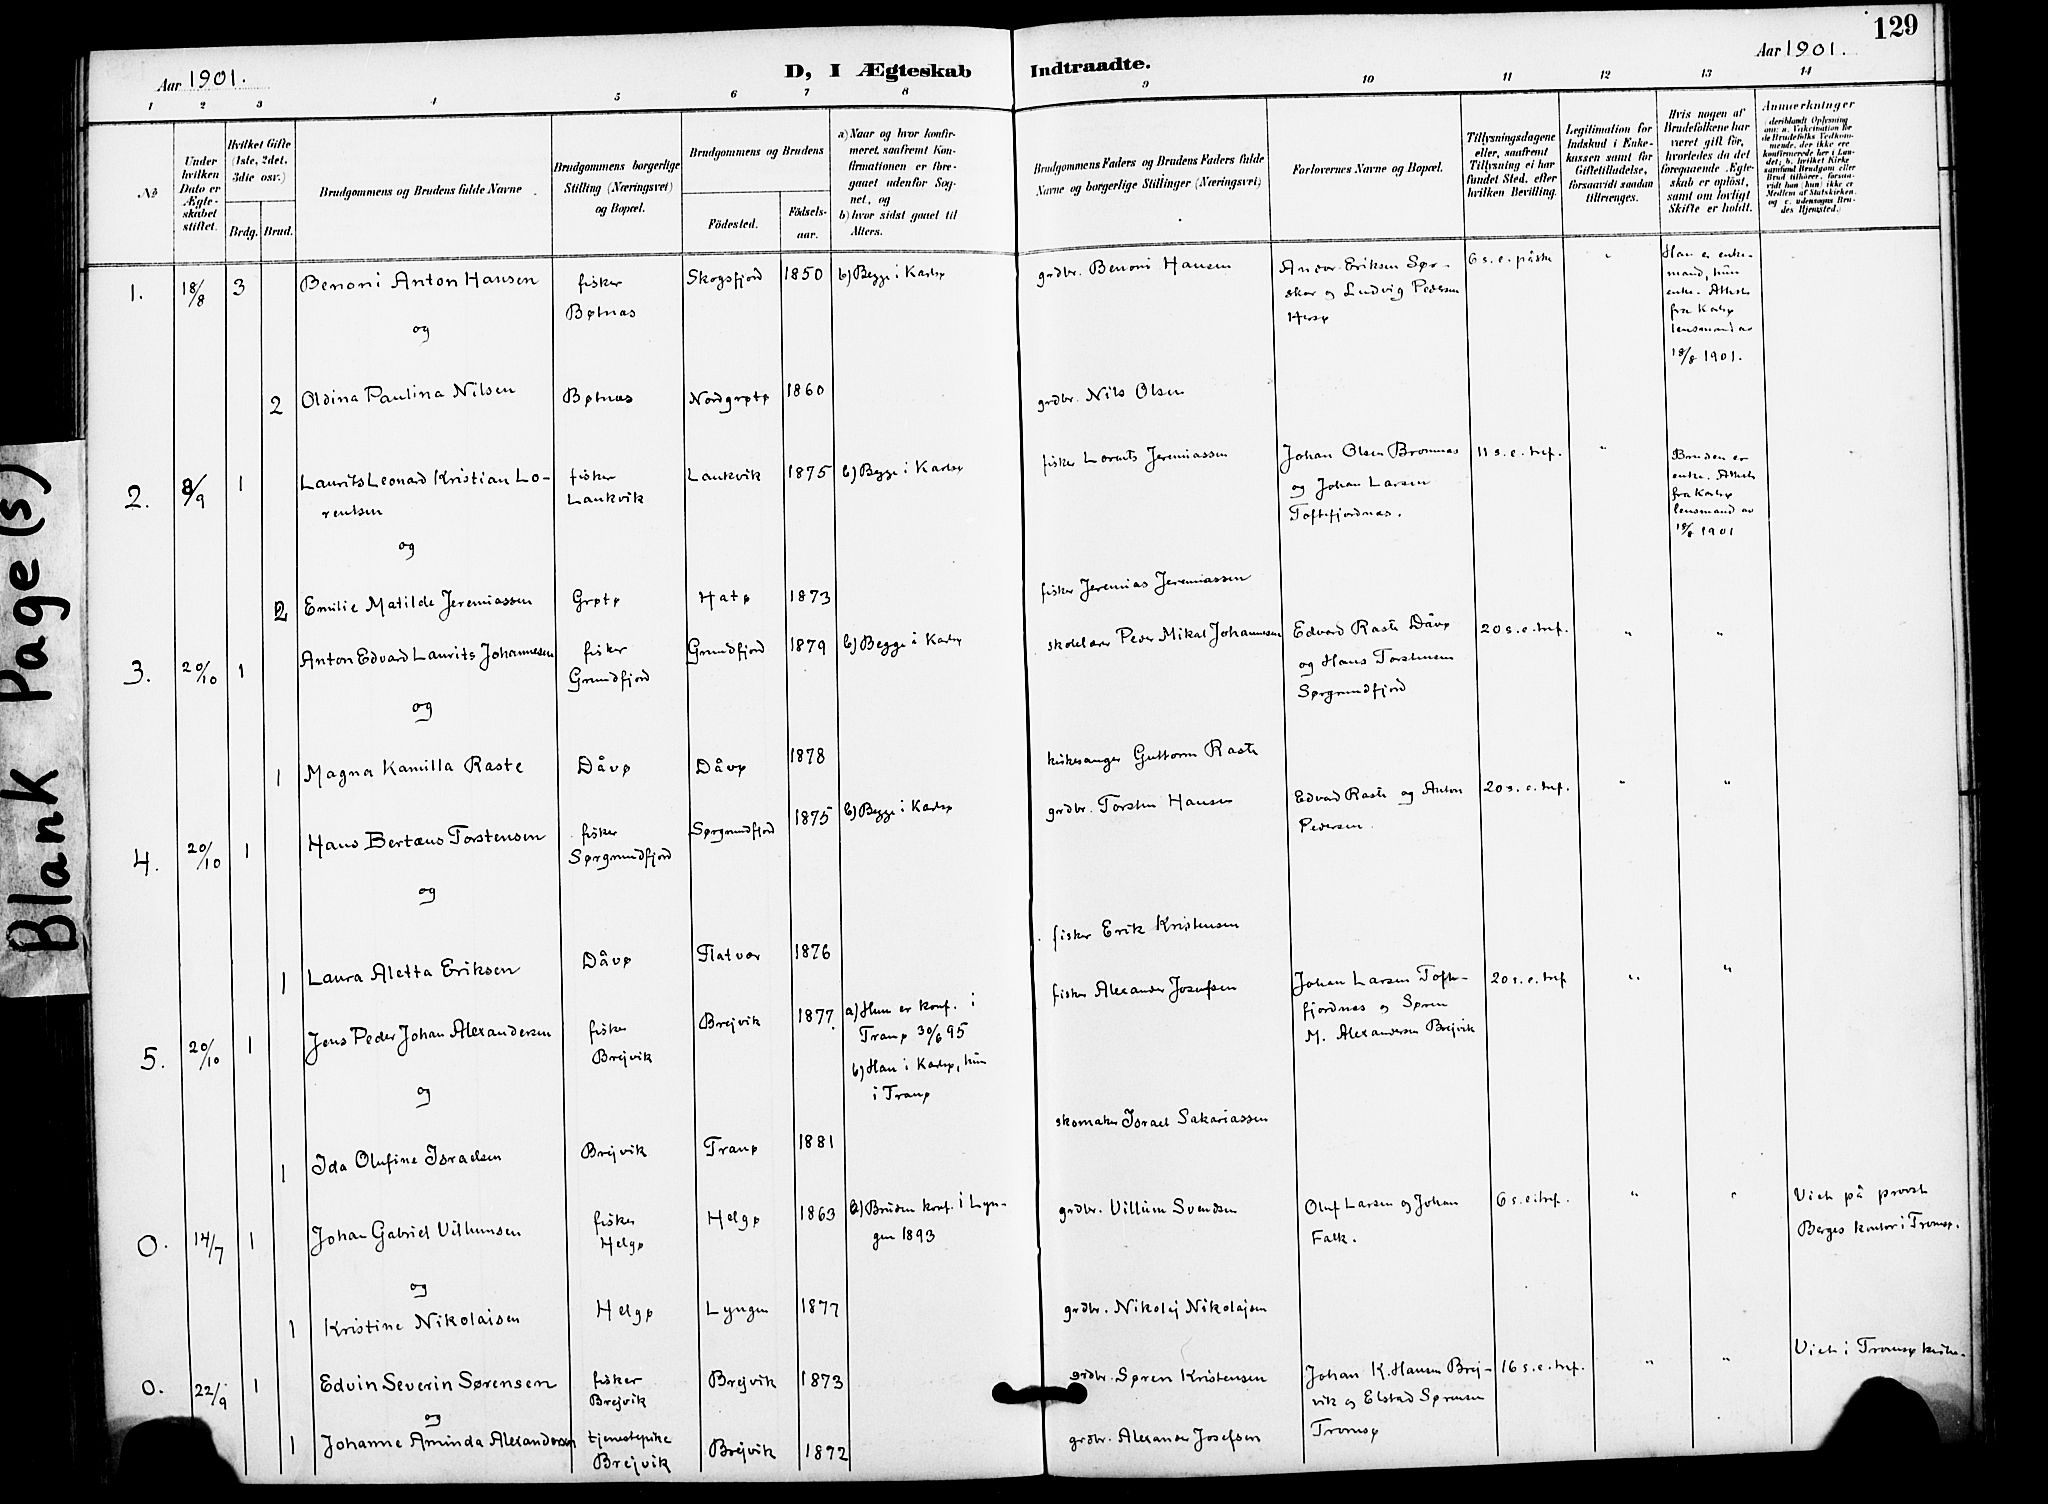 129
Aar 1901.
D, I Ægteskab Indtraadte.
Aar 1901.
1 2 3 4 5 6 7 8 9 10 11 12 13 14
No
Under hvilken Dato er Ægteskabet stiftet.
Hvilket Gifte (1ste, 2det, 3die osv.)
Brdg. Brud.
Brudgommens og Brudens fulde Navne.
Brudgommens borgerlige Stilling (Næringsvei) og Bopæl.
Brudgommens og Brudens
Födested. Födselsaar.
a) Naar og hvor konfirmeret, saafremt Konfirmationen er foregaaet udenfor Sognet, og
b) hvor sidst gaaet til Alters.
Brudgommens Faders og Brudens Faders fulde Navne og borgerlige Stillinger (Næringsvei)
Forlovernes Navne og Bopæl.
Tillysningsdagene eller, saafremt Tillysning ei har fundet Sted, efter hvilken Bevilling.
Legitimation for Indskud i Enkekassen samt for Giftetilladelse, forsaavidt saadan tiltrænges.
Hvis nogen af Brudefolkene har været gift før, hvorledes da det foregaaende Ægteskab er opløst, samt om lovligt Skifte er holdt.
Anmærkninger
(deriblandt Oplysning om: a. Vakcination for de Brudefolks Vedkommende, der ikke ere konfirmerede her i Landet; b. hvilket Kirkesamfund Brudgom eller Brud tilhører, forsaavidt han (hun) ikke er Medlem af Statskirken, og c. udensogns Brudes Hjemsted.)
1. 18/8 3 Benoni Anton Hansen fisker Bøtnæs Skogsfjord 1850 b) Begge i Karlsø grdbr. Benoni Hansen
Eriksen Sørskar og Ludvig Pedersen
6 s. e. påske "
Han er enkemand, hun enke. Attest fra Karlsø lensmand av 18/8 1901.
og
2 Oldina Paulina Nilsen Bøtnæs Nordgrøtø 1860 grdbr. Nils Olsen
2. 8/9 1 Laurits Leonard Kristian Lorentsen fisker Lankvik Lankvik 1875 b) Begge i Karlsø fisker Lorents Jeremiassen
Johan Olsen Bromnæs og Johan Larsen Toftefjordnæs.
11 s. e. tref. "
Bruden er enke. Attest fra Karlsø lensmand av 18/8 1901
og
2 Emilie Matilde Jeremiassen Grøtø Hatø 1873 fisker Jeremias Jeremiassen
3. 20/10 1 Anton Edvard Laurits Johannesen fisker Grundfjord Grundfjord 1879 b) Begge i Karlsø skolelærer Peder Mikal Johannesen
Edvard Raste Dåvø og Hans Torstensen Sørgrundfjord
20 s. e. tref. " "
og
1 Magna Kamilla Raste Dåvø Dåvø 1878 kirkesanger Guttorm Raste
4. 20/10 1 Hans Bertæus Torstensen fisker Sørgrundfjord Sørgrundfjord 1875 b) Begge i Karlsø grdbr. Torsten Hansen
Edvard Raste og Anton Pedersen.
20 s. e. tref. " "
og
1 Laura Aletta Eriksen Dåvø Flatvær 1876 fisker Erik Kristensen
5. 20/10 1 Jens Peder Johan Alexandersen fisker Brejvik Brejvik 1877. a) Hun er konf. i Tranø 30/6 95
b) Han i Karlsø, hun i Tranø
fisker Alexander Josefsen
Johan Larsen Toftefjordnæs og Søren M. Alexandersen Brejvik
20 s. e. tref " "
og
1 Ida Olufine Israelsen Brejvik Tranø 1881 skomaker Israel Sakariassen
0. 14/7 1 Johan Gabriel Villumsen fisker Helgø Helgø 1863 a) Bruden konf. i Lyngen 1893
grdbr. Villum Svendsen
Oluf Larsen og Johan Falk.
6 s. e. tref. " "
Viet på provst Berges kontor i Tromsø.
og
1 Kristine Nikolaisen Helgø Lyngen 1877 grdbr. Nikolej Nikolajsen
0. 22/9 1 Edvin Severin Sørensen fisker Brejvik Brejvik 1873 grdbr. Søren Kristensen
Johan K. Hansen Brejvik og Elstad Sørensen Tromsø
16 s. e. tref. " "
Viet i Tromsø kirke.
og
1 Johanne Aminda Alexandersen tjenestepike Brejvik Brejvik 1872 grdbr. Alexander Josefsen
Blank Page(s)